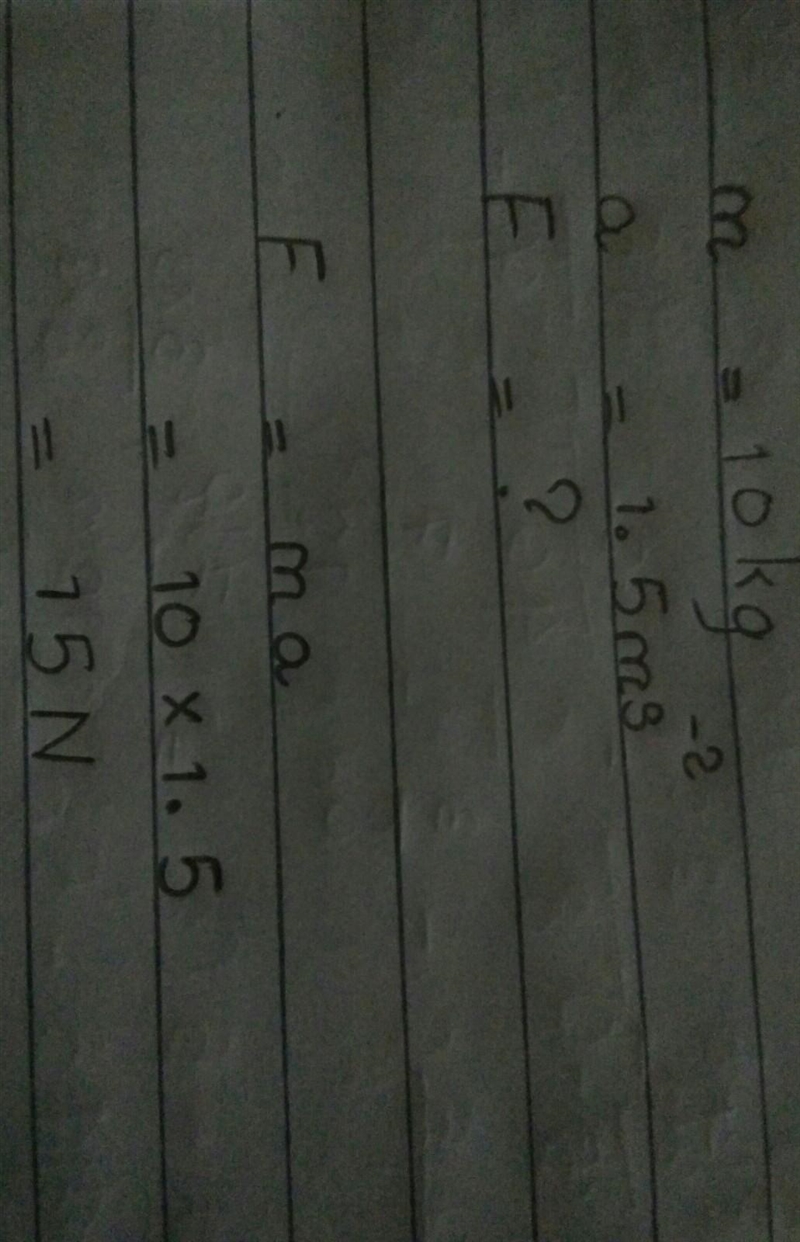 m = 10 kg
a = 1.5 ms⁻²
F = ?
F = ma
= 10 × 1.5
= 15 N